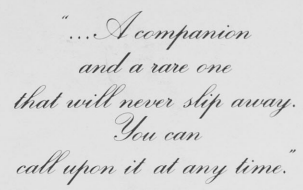 "...A companion
and a rare one
that will never slip away.
You can
call upon it at any time."